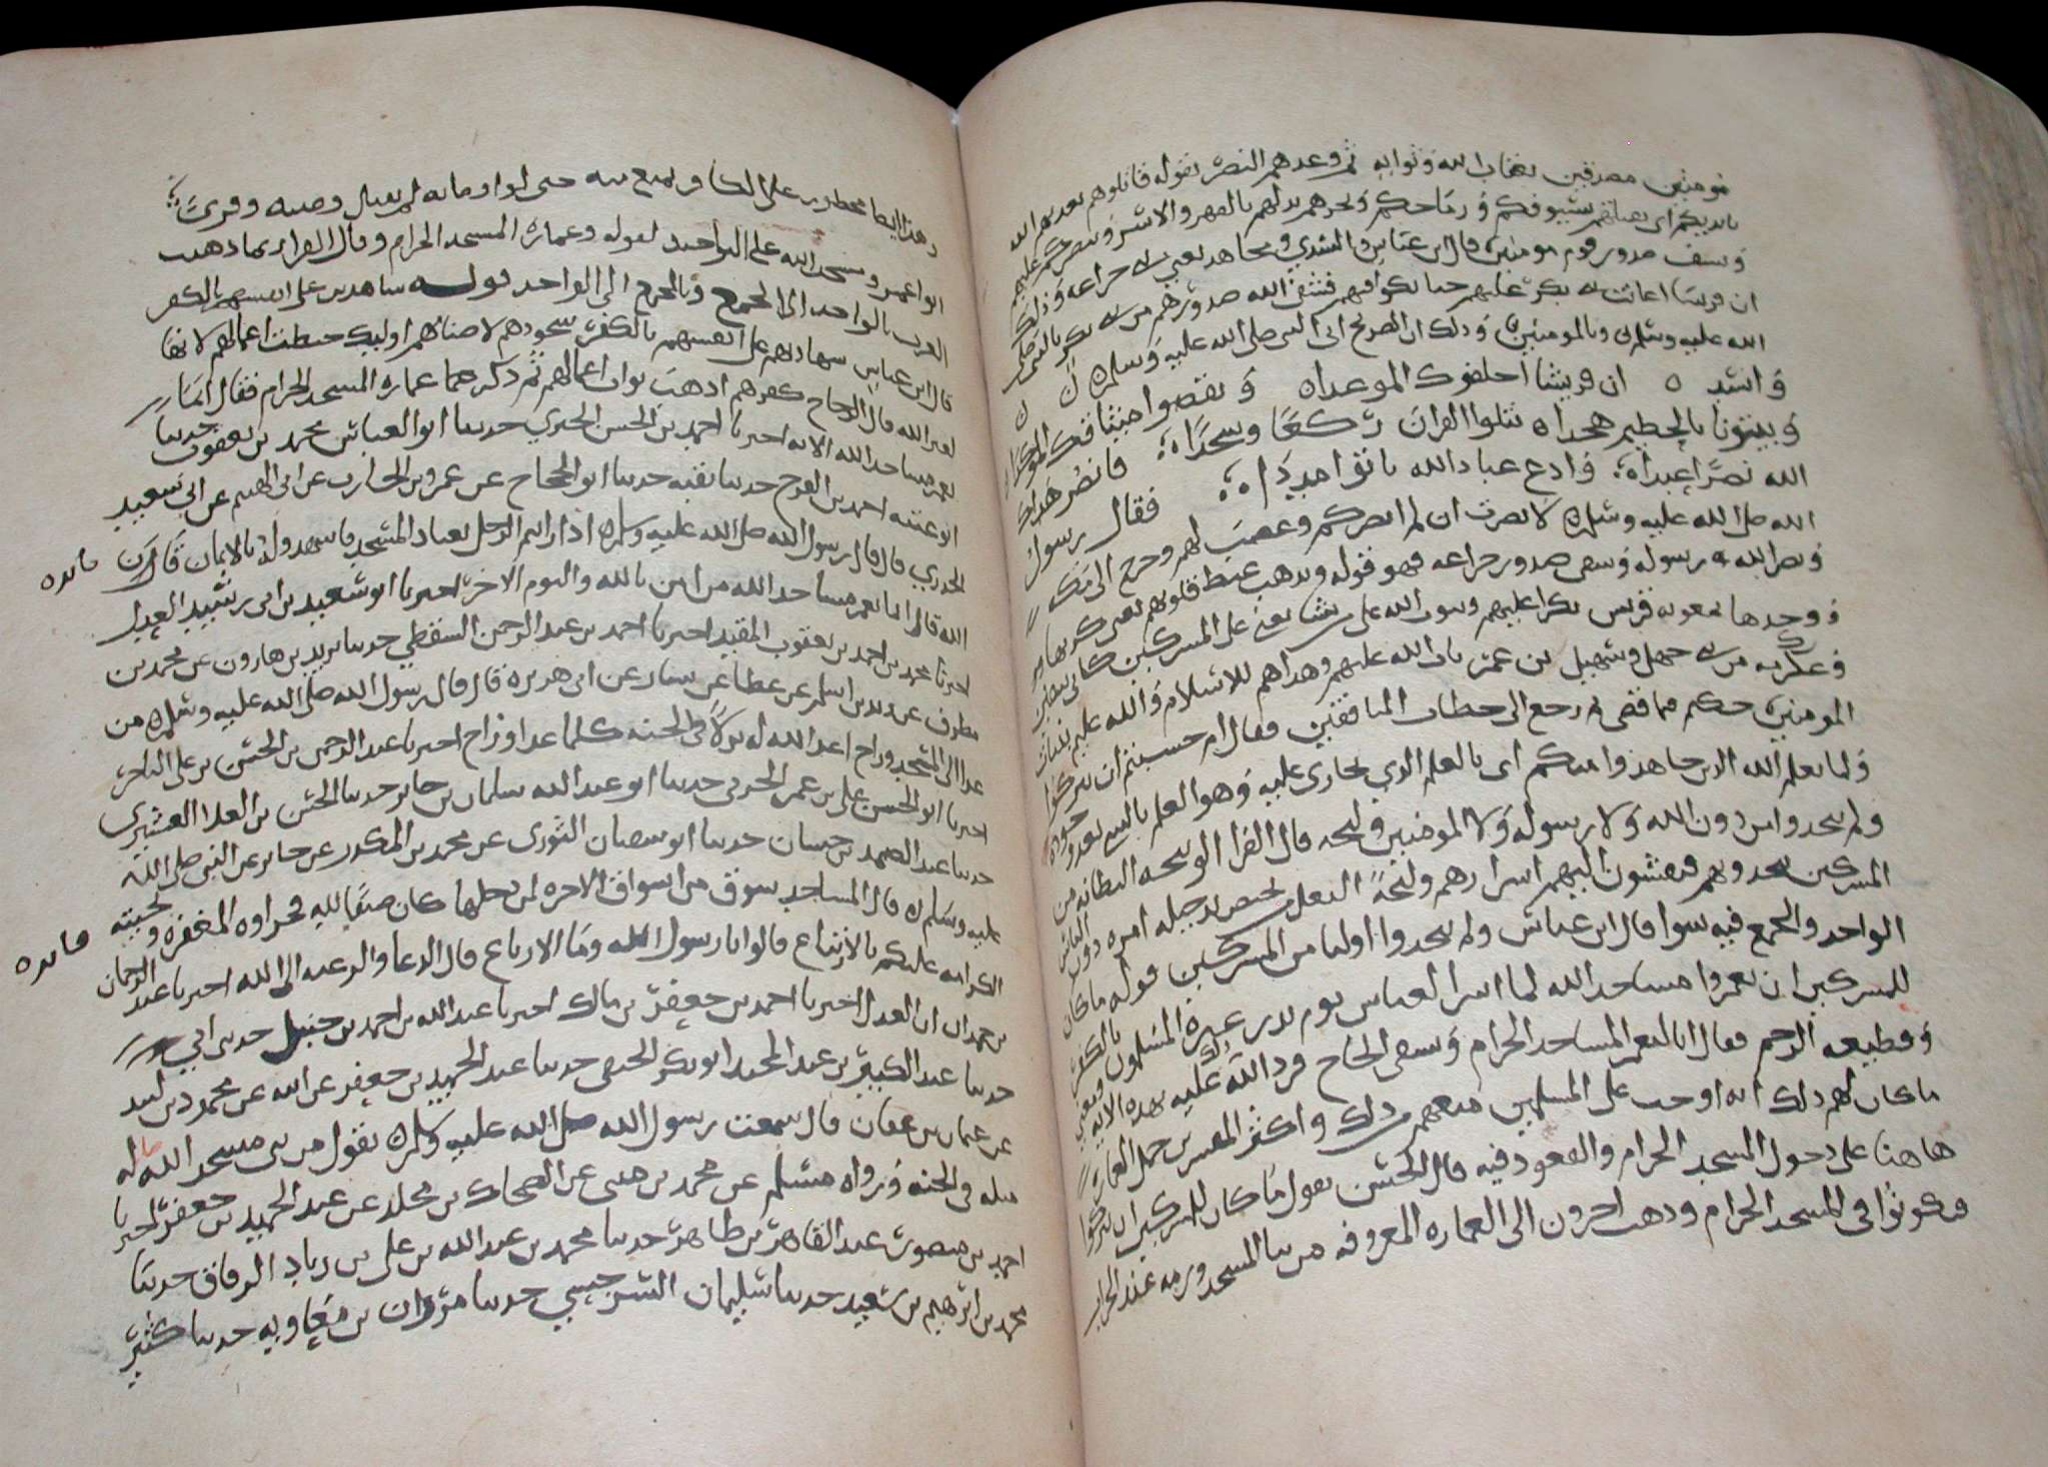 مومنين مصدقين بعقاب الله وثوابه ثم وعدهم النصر بقوله قاتلوهم يعذبهم الله
بايديكم اى يقتلهم بسيوفكم ورماحكم ويخزهم يذلهم بالقهر والاسر وينصركم عليهم
ويشف صدور قوم مومنين قال ابن عباس والسدي ومجاهد يعني خزاعه وذلك
ان قريشا اعانت بكر عليهم حتى نكوا فيهم فشفى الله صدورهم من بكر بالنبي صلى
الله عليه وسلم وبالمومنين وذلك ان الصريخ اتى النبي صلى الله عليه وسلم
وانشد ان قريشا اخلفوك الموعدا ه ونقضوا ميثاقك الموكدا
وبيتونا بالحطيم هجدا ه نتلوا القران ركعا وسجدا ه فانصر هداك
الله نصرا عبدا ه وادع عباد الله ياتوا مددا ه فقال رسول
الله صلى الله عليه وسلم لا نصرت ان لم انصركم وغضب لهم وخرج الى مكه
ونصر الله رسوله وشفى صدور خزاعه فهو قوله ويذهب غيظ قلوبهم يعني كربها
ووجدها بمعونه قريش بكرا عليهم ويتوب الله على من يشا يعني على المشركين كابى سفين
وعكرمه بن ابي جهل وسهيل بن عمرو تاب الله عليهم وهداهم للاسلام والله عليم بنيات
المومنين حكيم فيما قضى ثم رجع الى خطاب المنافقين فقال ام حسبتم ان تتركوا
ولما يعلم الله الذين جاهدوا منكم اى بالعلم الذي يجازى عليه وهو العلم بالشي بعد وجوده
ولم يتخذوا من دون الله ولا رسوله ولا المومنين وليجه قال الفرا الوليجه البطانه من
المشركين يتخذونهم فيفشون اليهم اسرارهم وليجة الرجل يختص بدخيله امره دون الناس
الواحد والجمع فيه سوا قال ابن عباس ولم يتخذوا اوليا من المشركين قوله ما كان
للمشركين ان يعمروا مساجد الله لما اسر العباس يوم بدر عيره المسلمون بالكفر
وقطيعه الرحم فقال انا لنعمر المسجد الحرام ونسقى الحاج فرد الله عليه بهذه الايه ويعني
ما كان لهم ذلك انه اوجب على المسلمين منعهم من ذلك واكثر المفسرين حمل العماره
هاهنا على دخول المسجد الحرام والقعود فيه قال الحسن يقول ما كان للمشركين ان يتركوا
فيكونوا فى المسجد الحرام وذهب اخرون الى العماره المعروفه من بنا المسجد ورمه عند الخراب
وهذا ايضا محظور على الكافر يمنع منه حتى لو اوصى به لم تقبل وصيته وقرئ
ابو عمرو مسجد الله على التوحيد لقوله وعماره المسجد الحرام وقال الفرا ربما ذهبت
العرب بالواحد الى الجمع وبالجمع الى الواحد قوله شاهدين على انفسهم بالكفر
قال ابن عباس شهادتهم على انفسهم بالكفر سجودهم لاصنامهم اوليك حبطت اعمالهم لانها
لغير الله قال الزجاج كفرهم اذهب ثواب اعمالهم ثم ذكر عماره المسجد الحرام فقال انما
يعمر مساجد الله الايه اخبرنا احمد بن الحسن الحيري حدثنا ابو العباس محمد بن يعقوب حدثنا
ابو عتبه احمد بن الفرج حدثنا بقيه حدثنا ابو الحجاج عن عمرو بن الحارث عن ابى الهيثم عن ابي سعيد
الخدري قال قال رسول الله صلى الله عليه وسلم اذا رايتم الرجل يعتاد المسجد فاشهدوا له بالايمان فان
الله قال انما يعمر مساجد الله من امن بالله واليوم الاخر اخبرنا ابو سعيد بن ابى رشيد العدل
اخبرنا محمد بن احمد بن يعقوب المفيد اخبرنا احمد بن عبد الرحمن السقطي حدثنا يزيد بن هارون عن محمد بن
مطرف عن زيد بن اسلم عن عطا عن يسار عن ابى هريره قال قال رسول الله صلى الله عليه وسلم من
غدا الى المسجد وراح اعد الله له نزلا فى الجنه كلما غدا او راح اخبرنا عبد الرحمن بن الحسن بن على التاجر
اخبرنا ابو الحسن على بن عمر الحربى حدثنا ابو عبد الله سلمان بن جابر حدثنا الحسن بن العلا القشيري
حدثنا عبد الصمد بن حسان حدثنا ابو سفيان الثورى عن محمد بن المنكدر عن جابر عن النبي صلى الله
عليه وسلم قال المساجد سوق من اسواق الاخره من دخلها كان ضيفا لله قراه المغفره وتحيته
الكرامه عليكم بالارتاع قالوا يا رسول الله وما الارتاع قال الدعا والرغبه الى الله اخبرنا عبد الرحمان
بن حمدان العدل اخبرنا احمد بن جعفر بن مالك اخبرنا عبد الله بن احمد بن حنبل حدثنى ابي
حدثنا عبد الكبير بن عبد المجيد ابو بكر الحنفى حدثنا عبد الحميد بن جعفر عن ابيه عن محمود بن لبيد
عن عثمان بن عفان قال سمعت رسول الله صلى الله عليه وسلم يقول من بنى مسجد الله بنا له
مثله فى الجنه ورواه مسلم عن محمد بن مثنى عن الضحاك بن مخلد عن عبد الحميد بن جعفر اخبرنا
احمد بن منصور عبد القاهر بن طاهر حدثنا محمد بن عبد الله بن على بن زياد الدقاق حدثنا
محمد بن ابرهيم بن سعيد حدثنا سليمان الشرحبيلي حدثنا مروان بن معاويه حدثنا كثير
فايده
فايده